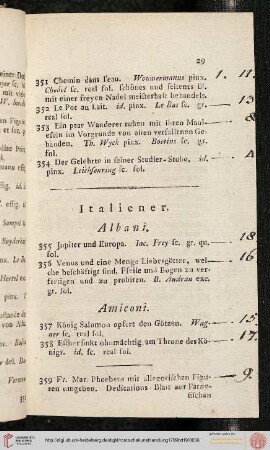 29
351 Chemin dans l'eau. Wouwermanus pinx. 1. 11.
Chedel sc. real fol. schönes und seltenes Bl.
mit einer freyen Nadel meisterhaft behandelt.
352 Le Pot au Lait. id. pinx. Le Bas sc. gr. 13
real fol.
353 Ein paar Wanderer ruhen mit ihren Maul- 8
eseln im Vorgrunde von alten verfallenen Ge-
bäuden. Th. Wyck pinx. Boetius sc. gr.
fol.
354 Der Gelehrte in seiner Studier-Stube. id. 4
pinx. sc. fol.
Italiener.
Albani.
355 Jupiter und Europa. Jac. Frey sc. gr. qu. 18
fol.
356 Venus und eine Menge Liebesgötter, wel- 16
che beschäftigt sind, Pfeile und Bogen zu ver-
fertigen und zu probiren. B. Audran exc.
gr. fol.
Amiconi.
357 König Salomon opfert den Götzen. Wag- 15.
ner sc. fol.
358 Esther sinkt ohnmächtig am Throne des Kö- 17.
nigs. id. sc. real fol.
359 Fr. Mar. Phoebeus mit allegorischen Figu- 9.
ren umgeben. Dedications-Blatt zur Farne-
sischen
http://digi.ub.uni-heidelberg.de/diglit/rostochkunsthandlung1789bd1f90/0036